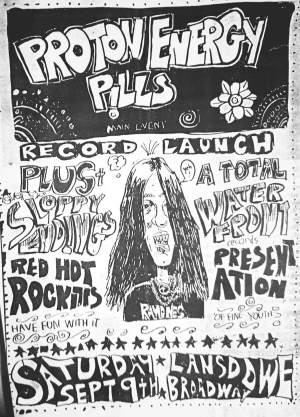 PROTON ENERGY
PILLS
MAIN EVENT
RECORD LAUNCH
PLUS
RED HOT
ROCKETTS
HAVE FUN WITH IT
A TOTAL
WATER
FRONT
PRESENT
ATION
OF FINE YOUTHS
RAMONES
SATURDAY ★ LANSDOWE
SEPT 9TH ★ BROADWAY